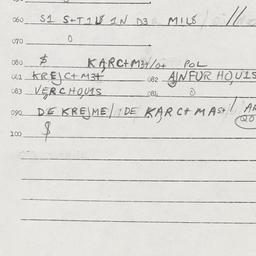 060 S1 S+T1L8 1N D3 MIL8 //
070 0
080 $ KARC+M3+/0+ POL
081 KREJC+M3+ 082 AJNFUR HOU1S
083 VERCHOU1S 084 0
090 DE KREJME/:DE KARC+MAS+/ AR
100 $